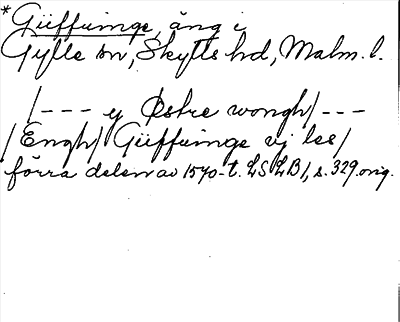 *Güffuinge, äng i
Gylle sn, Skytts hd, Malm. l.
/--- y Østre wongh/---
/Engh/ Güffuinge vj les/
förra delen av 1570-t. LSLB 1, s. 329 orig.